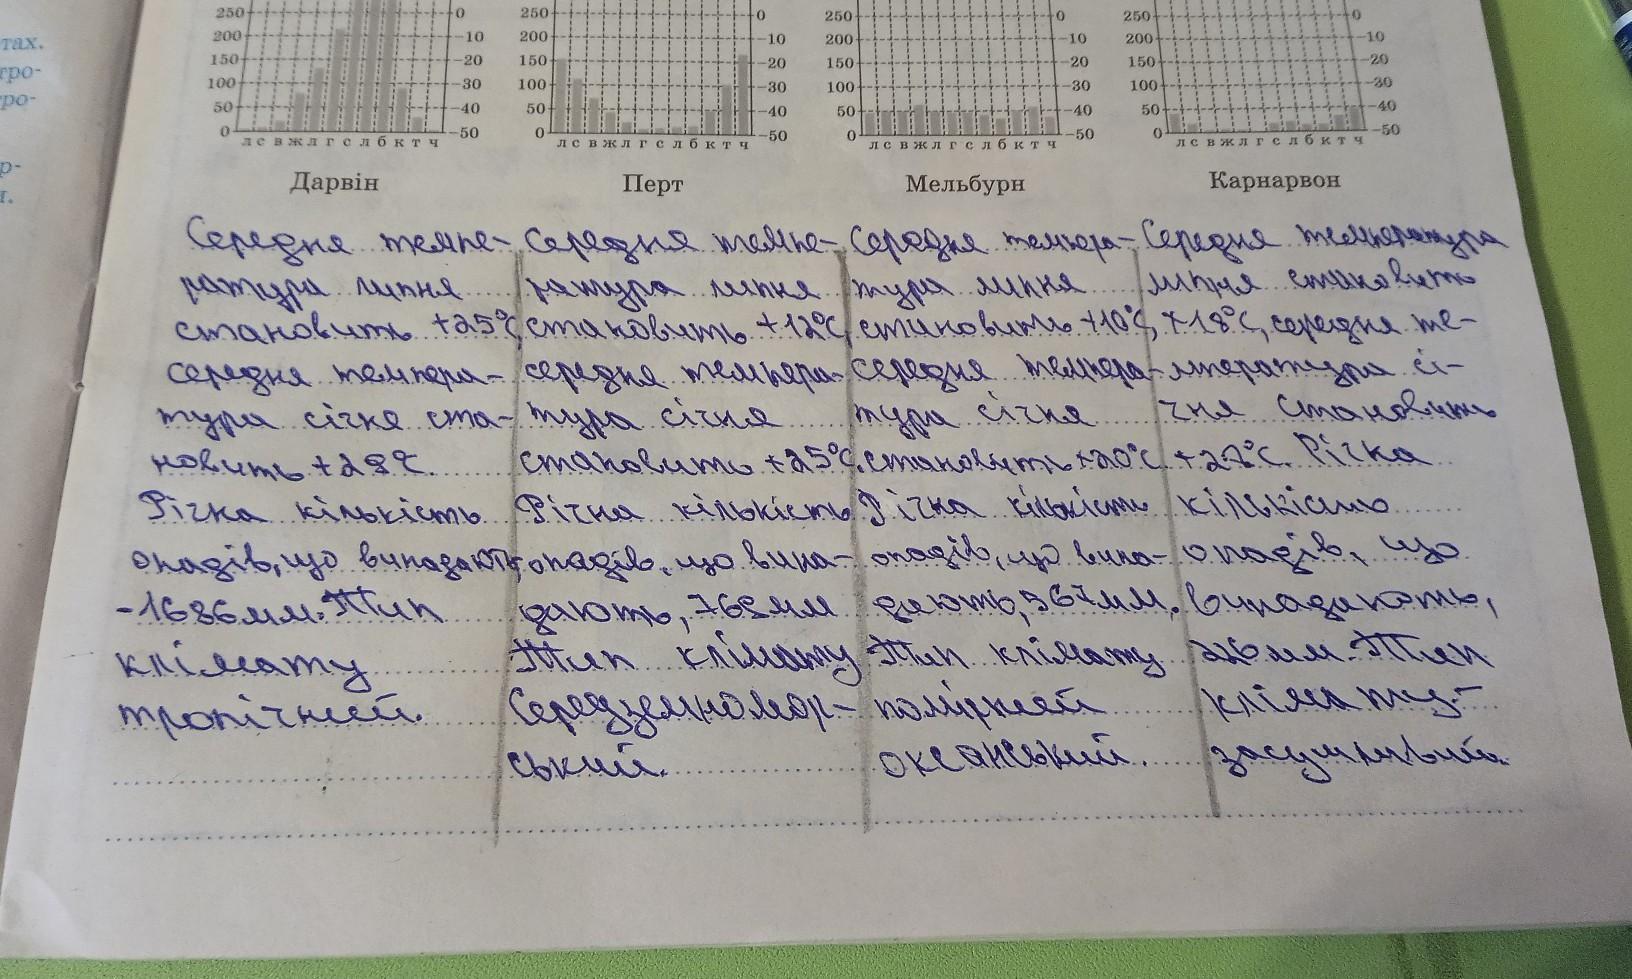 тах.
тро-
ро-
р-
250 0 250 0 250 0 250 0
200 -10 200 -10 200 -10 200 -10
150 -20 150 -20 150 -20 150 -20
100 -30 100 -30 100 -30 100 -30
50 -40 50 -40 50 -40 50 -40
0 -50 0 -50 0 -50 0 -50
л с в ж л г с л б к т ч л с в ж л г с л б к т ч л с в ж л г с л б к т ч л с в ж л г с л б к т ч
Дарвін
Середня темпе-
ратура липня
становить +25°С,
середня темпера-
тура січня ста-
новить +28°С.
Річна кількість
опадів, що випадають,
-1686мм. Тип
клімату
тропічний.
Перт
Середня темпе-
ратура липня
становить +12°С,
середня темпера-
тура січня
становить +25°С.
Річна кількість
опадів, що випа-
дають, 768мм
Тип клімату
Середземномор-
ський.
Мельбурн
Середня темпера-
тура липня
становить +10°С,
середня темпера-
тура січня
становить +20°С.
Річна кількість
опадів, що випа-
дають, 567мм.
Тип клімату
помірний
океанський.
Карнарвон
Середня температура
липня становить
+18°С, середня те-
мпература сі-
чня становить
+27°С. Річна
кількістю
опадів, що
випадають,
226мм. Тип
клімату-
засушливий.